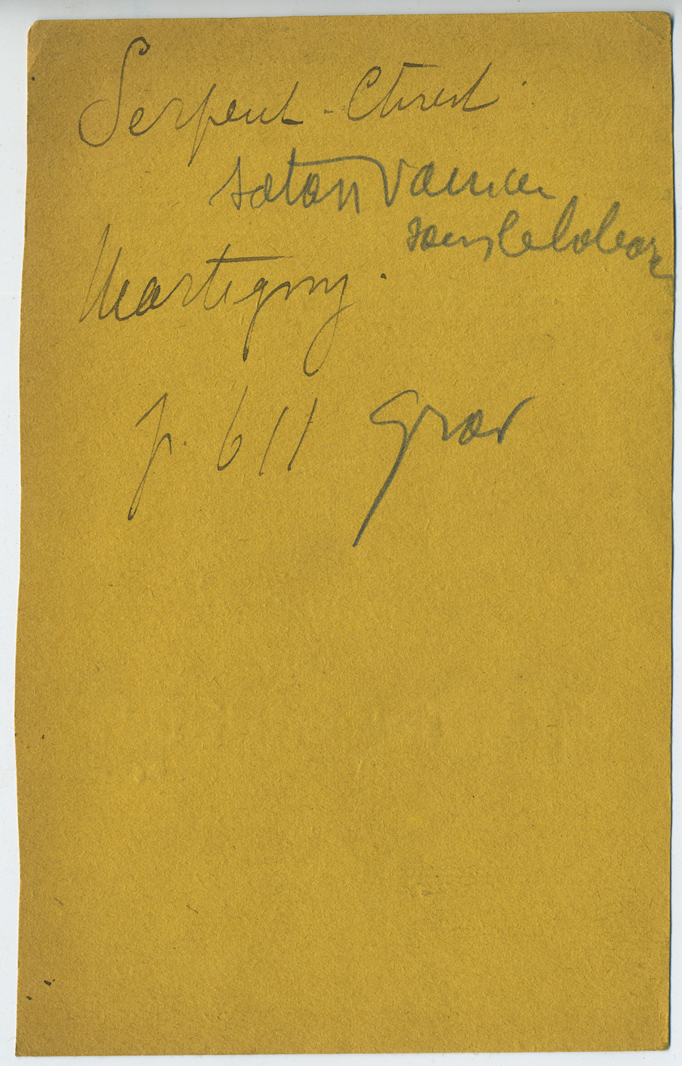 Serpent - Christ
satan vaincu
sous le
Martigny.
p. 611 grav